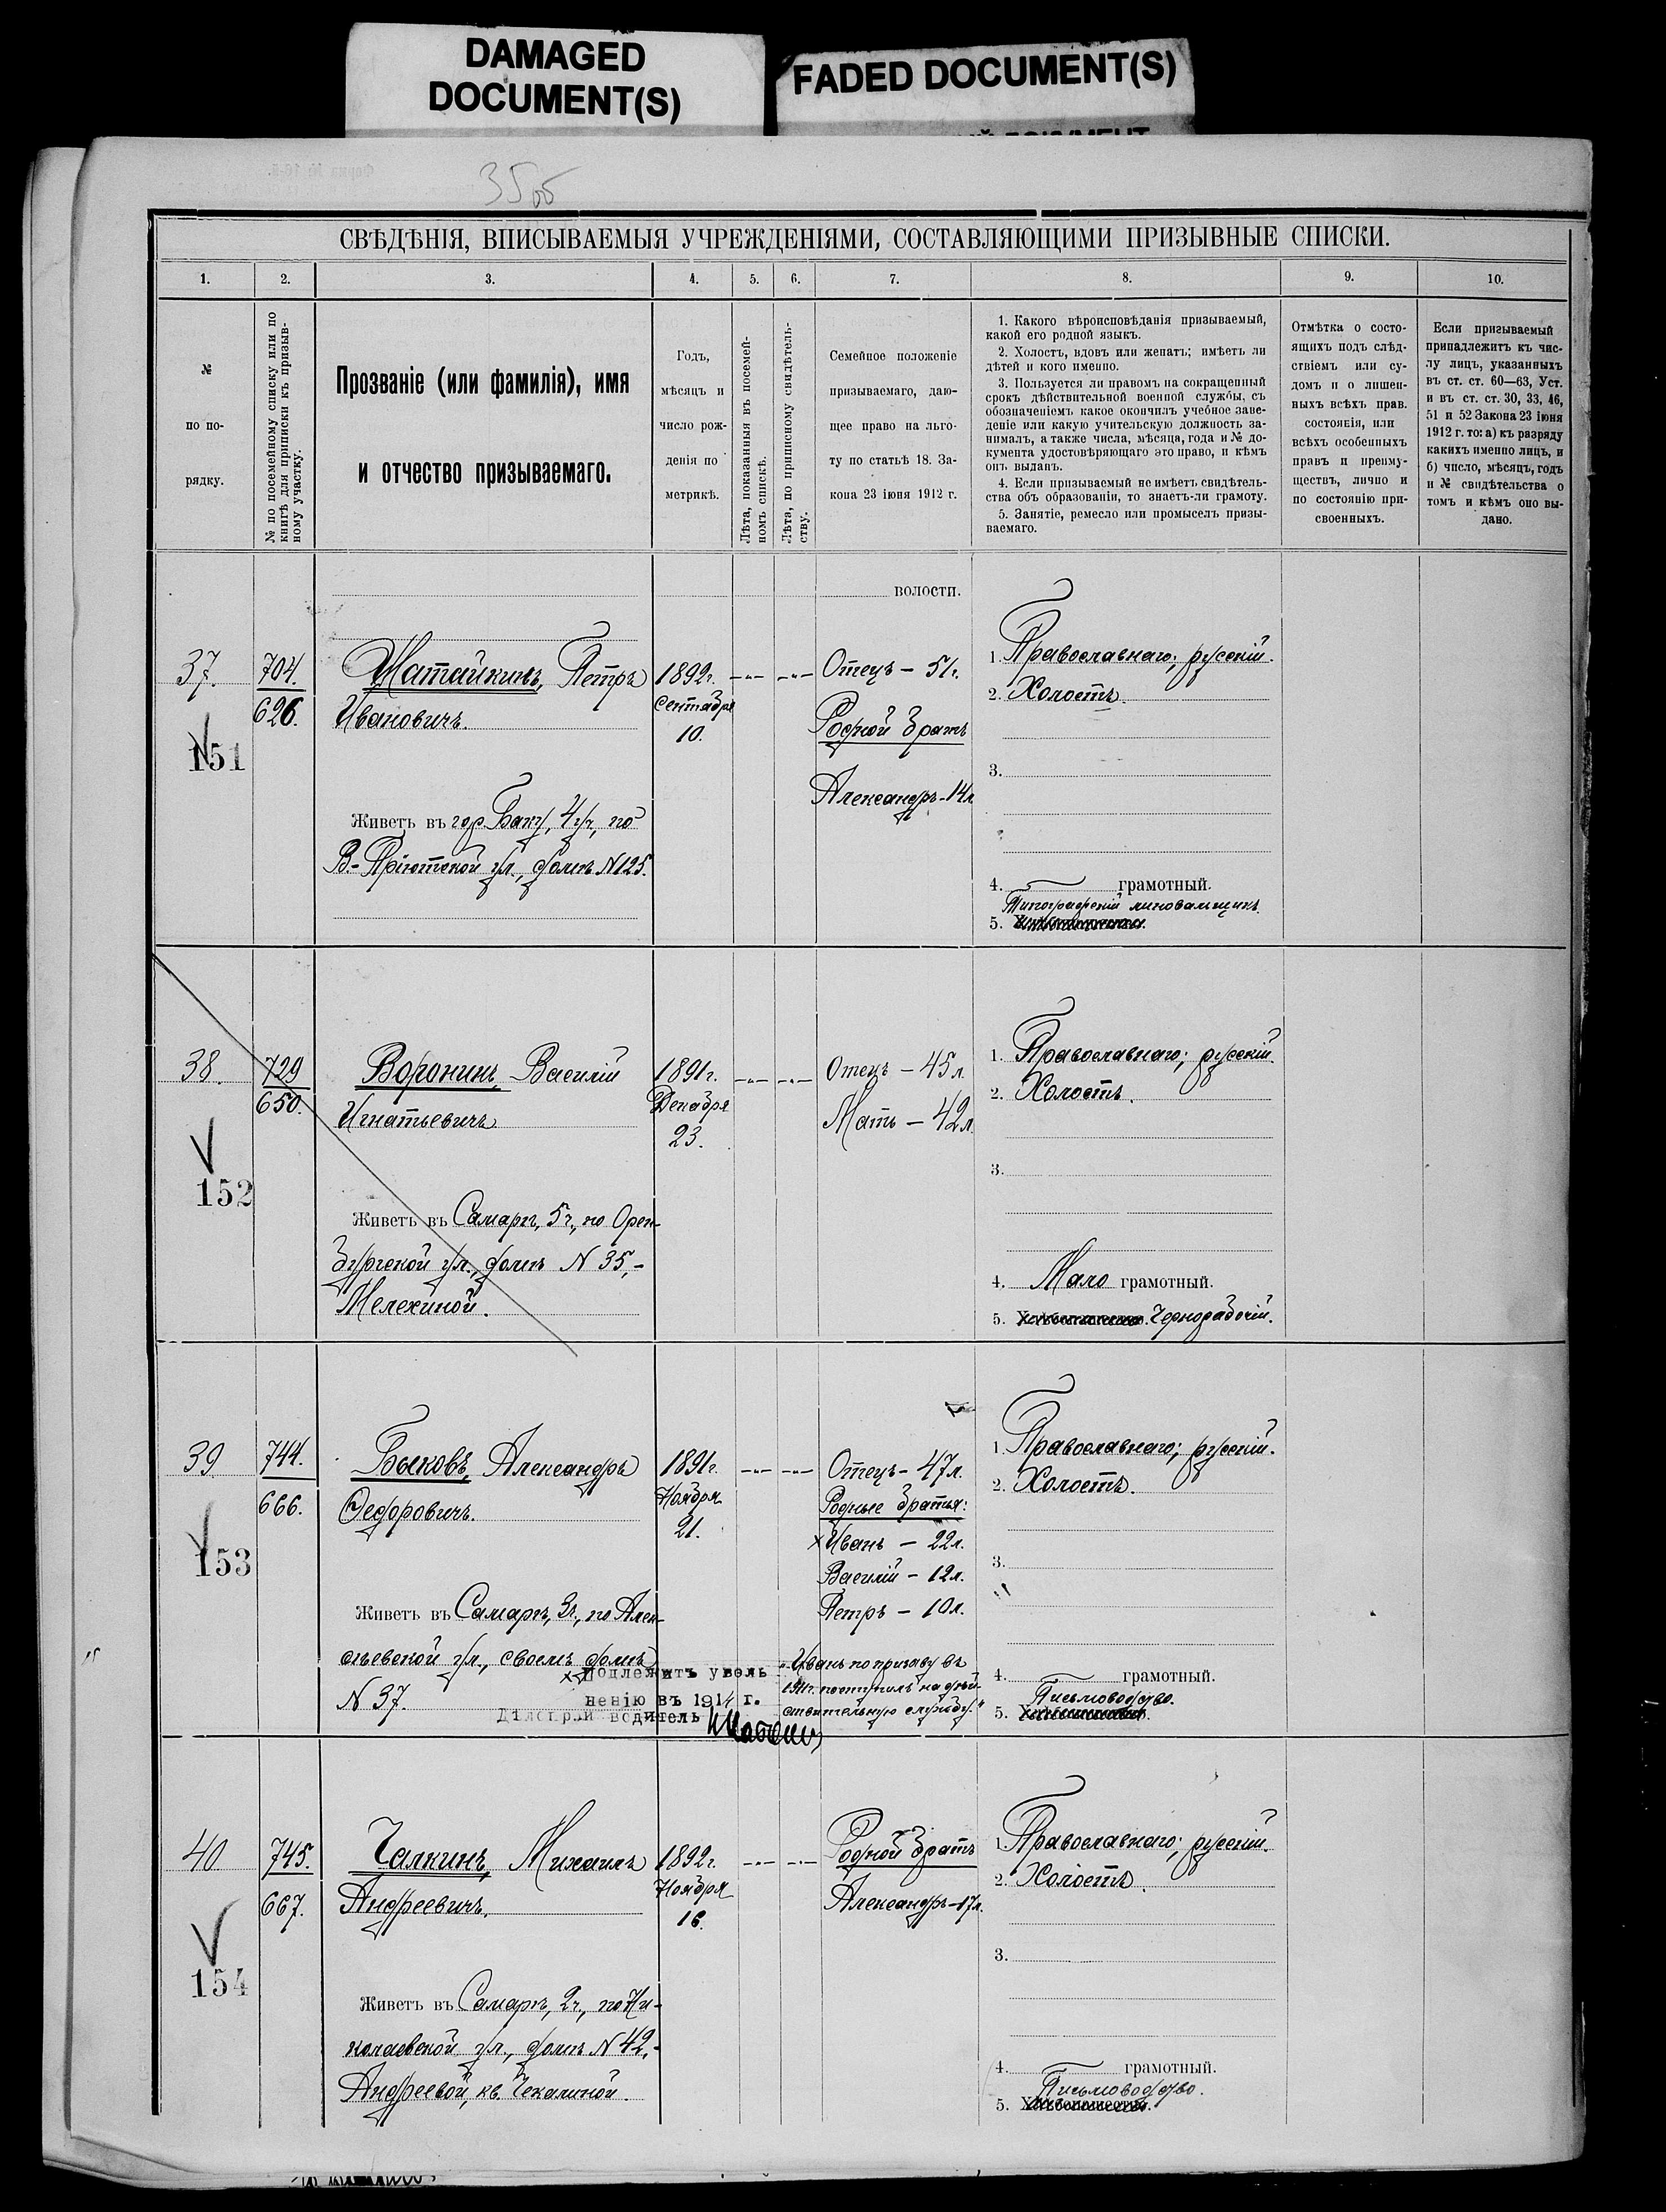 DAMAGED
DOCUMENT(S)
FADED DOCUMENT(S)
35об
СВѢДѢНІЯ, ВПИСЫВАЕМЫЯ УЧРЕЖДЕНІЯМИ, СОСТАВЛЯЮЩИМИ ПРИЗЫВНЫЕ СПИСКИ.
1. 2. 3. 4. 5. 6. 7. 8. 9. 10.
№
по по-
рядку.
№ по посемейному списку или по
книгѣ для приписки къ призыв-
ному участку.
Прозваніе (или фамилія), имя
и отчество призываемаго.
Годъ,
мѣсяцъ и
число рож-
денія по
метрикѣ.
Лѣта, показанныя въ посемей-
номъ спискѣ.
Лѣта, по приписному свидѣтель-
ству.
Семейное положеніе
призываемаго, даю-
щее право на льго-
ту по статьѣ 18. За-
кона 23 іюня 1912 г.
1. Какого вѣроисповѣданія призываемый,
какой его родной языкъ.
2. Холостъ, вдовъ или женатъ; имѣетъ ли
дѣтей и кого именно.
3. Пользуется ли правомъ на сокращенный
срокъ дѣйствительной военной службы, съ
обозначеніемъ какое окончилъ учебное заве-
деніе или какую учительскую должность за-
нималъ, а также числа, мѣсяца, года и № до-
кумента удостовѣряющаго это право, и кѣмъ
онъ выданъ.
4. Если призываемый не имѣетъ свидѣтель-
ства объ образованіи, то знаетъ-ли грамоту.
5. Занятіе, ремесло или промыселъ призы-
ваемаго.
Отмѣтка о состо-
ящихъ подъ слѣд-
ствіемъ или су-
домъ и о лишен-
ныхъ всѣхъ прав.
состоянія, или
всѣхъ особенныхъ
правъ и преиму-
ществъ, лично и
по состоянію при-
своенныхъ.
Если призываемый
принадлежитъ къ чис-
лу лицъ, указанныхъ
въ ст. ст. 60—63, Уст.
и въ ст. ст. 30, 33, 46,
51 и 52 Закона 23 іюня
1912 г. то: а) къ разряду
какихъ именно лицъ, и
б) число, мѣсяцъ, годъ
и № свидѣтельства о
томъ и кѣмъ оно вы-
дано.
волости.
37.
151
704.
626.
Петръ
Ивановичъ.
Живетъ въ гор. 4ч, по
В.-Пріютской ул., домъ N 125.
1892г.
Сентября
10.
Отецъ – 51г.
Родной братъ
Александръ - 14л
1. Православнаго; русскій.
2. Холостъ.
3.
4. грамотный.
Типографскій
5.
38.
152
729
650.
Воронинъ, Василій
Игнатьевичъ
Живетъ въ Самарѣ, 5ч, по Орен-
бургской ул., домъ N 35,-
Мелехиной.
1891г.
Декабря
23.
Отецъ – 45л.
Мать – 42л.
1. Православнаго; русскій.
2. Холостъ.
3.
4. Мало грамотный.
5. Хлѣбопашество. Чернорабочій.
39
153
744.
666.
Быковъ, Александръ
Федоровичъ.
Живетъ въ Самарѣ, 3ч, по Алек-
сѣевской ул., своемъ домѣ
N 37.
х Подлежитъ уволь-
ненію въ 1914 г.
Дѣлопроизводитель
1891г.
Ноября
21.
Отецъ - 47л.
Родные братья:
х Иванъ – 22л.
Василій – 12л.
Петръ – 10л.
„Иванъ по призыву въ
1911г. поступилъ на дѣй-
ствительную службу."
1. Православнаго; русскій.
2. Холостъ.
3.
4. грамотный.
Письмоводство.
5. Хлѣбопашество.
40
154
745.
667.
Чалкинъ, Михаилъ
Андреевичъ.
Живетъ въ Самарѣ, 2ч, по Ни-
колаевской ул., домъ N 42,-
Андреевой, кв. Чекалиной.
1892г.
Ноября
16.
Родной братъ
Александръ - 17л.
1. Православнаго; русскій.
2. Холостъ.
3.
4. грамотный.
Письмоводство.
5. Хлѣбопашество.